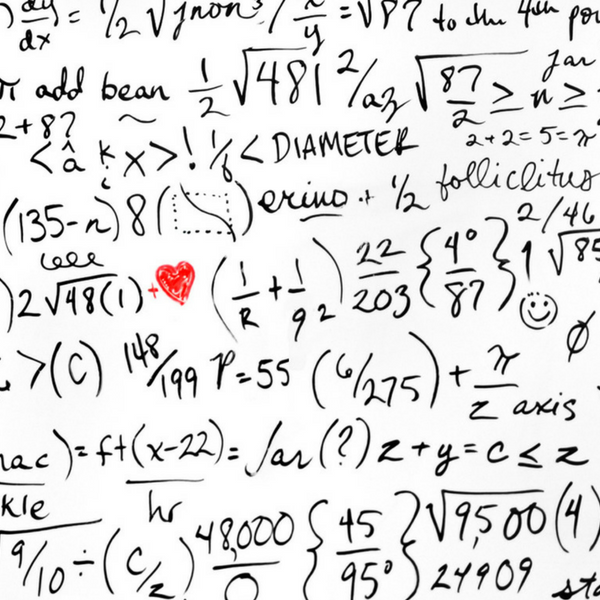 dy/dx = 1/2 √jnon³/ x/y = √87 to the 4th po
r add bean 1/2 √481 2/az √87/2 ≥ n ≥ jar
2+8? <â k x>! 1/6 < DIAMETER 2+2=5=π
(135-n) 8( ) erino + 1/2 folliclitus
)2√48(1) +❤ (1/R + 1/9 2) 22/203 {4°/87} 1 2/46 √85 ☺
>(C) 148/199 P=55 (6/275) + π/z axis ø
nac)= ft(x-22)/hr = Jar(?) z+y=c≤z
kle
9/10 ÷ (c/z) 48,000/0 {45/95°} √9,500 (4)
24909 sta